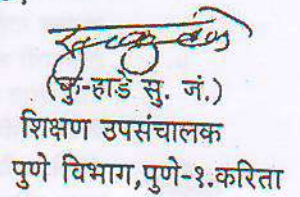 (कु-हाडे सु. जं.)
शिक्षण उपसंचालक
पुणे विभाग,पुणे-१.करिता